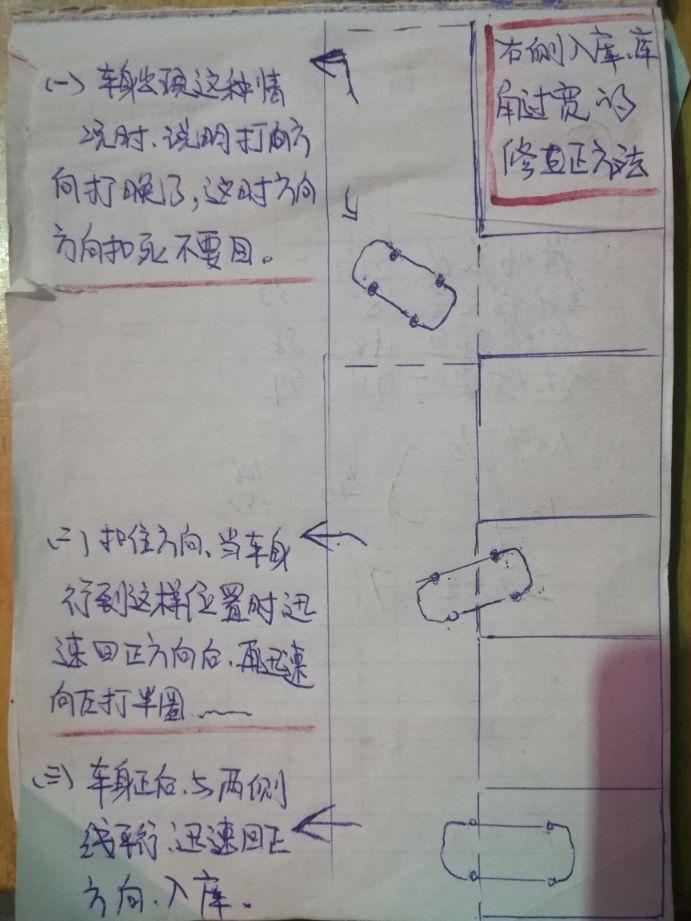 右侧入库、库
角过宽的
修正方法
(一) 车身出现这种情
况时、说明打的方
向打晚了,这时方向
方向扣死不要回。
(二) 扣住方向、当车身
行到这样位置时迅
速回正方向后、再迅速
向左打半圈……
(三) 车身正后、与两侧
线平行、迅速回正
方向、入库。